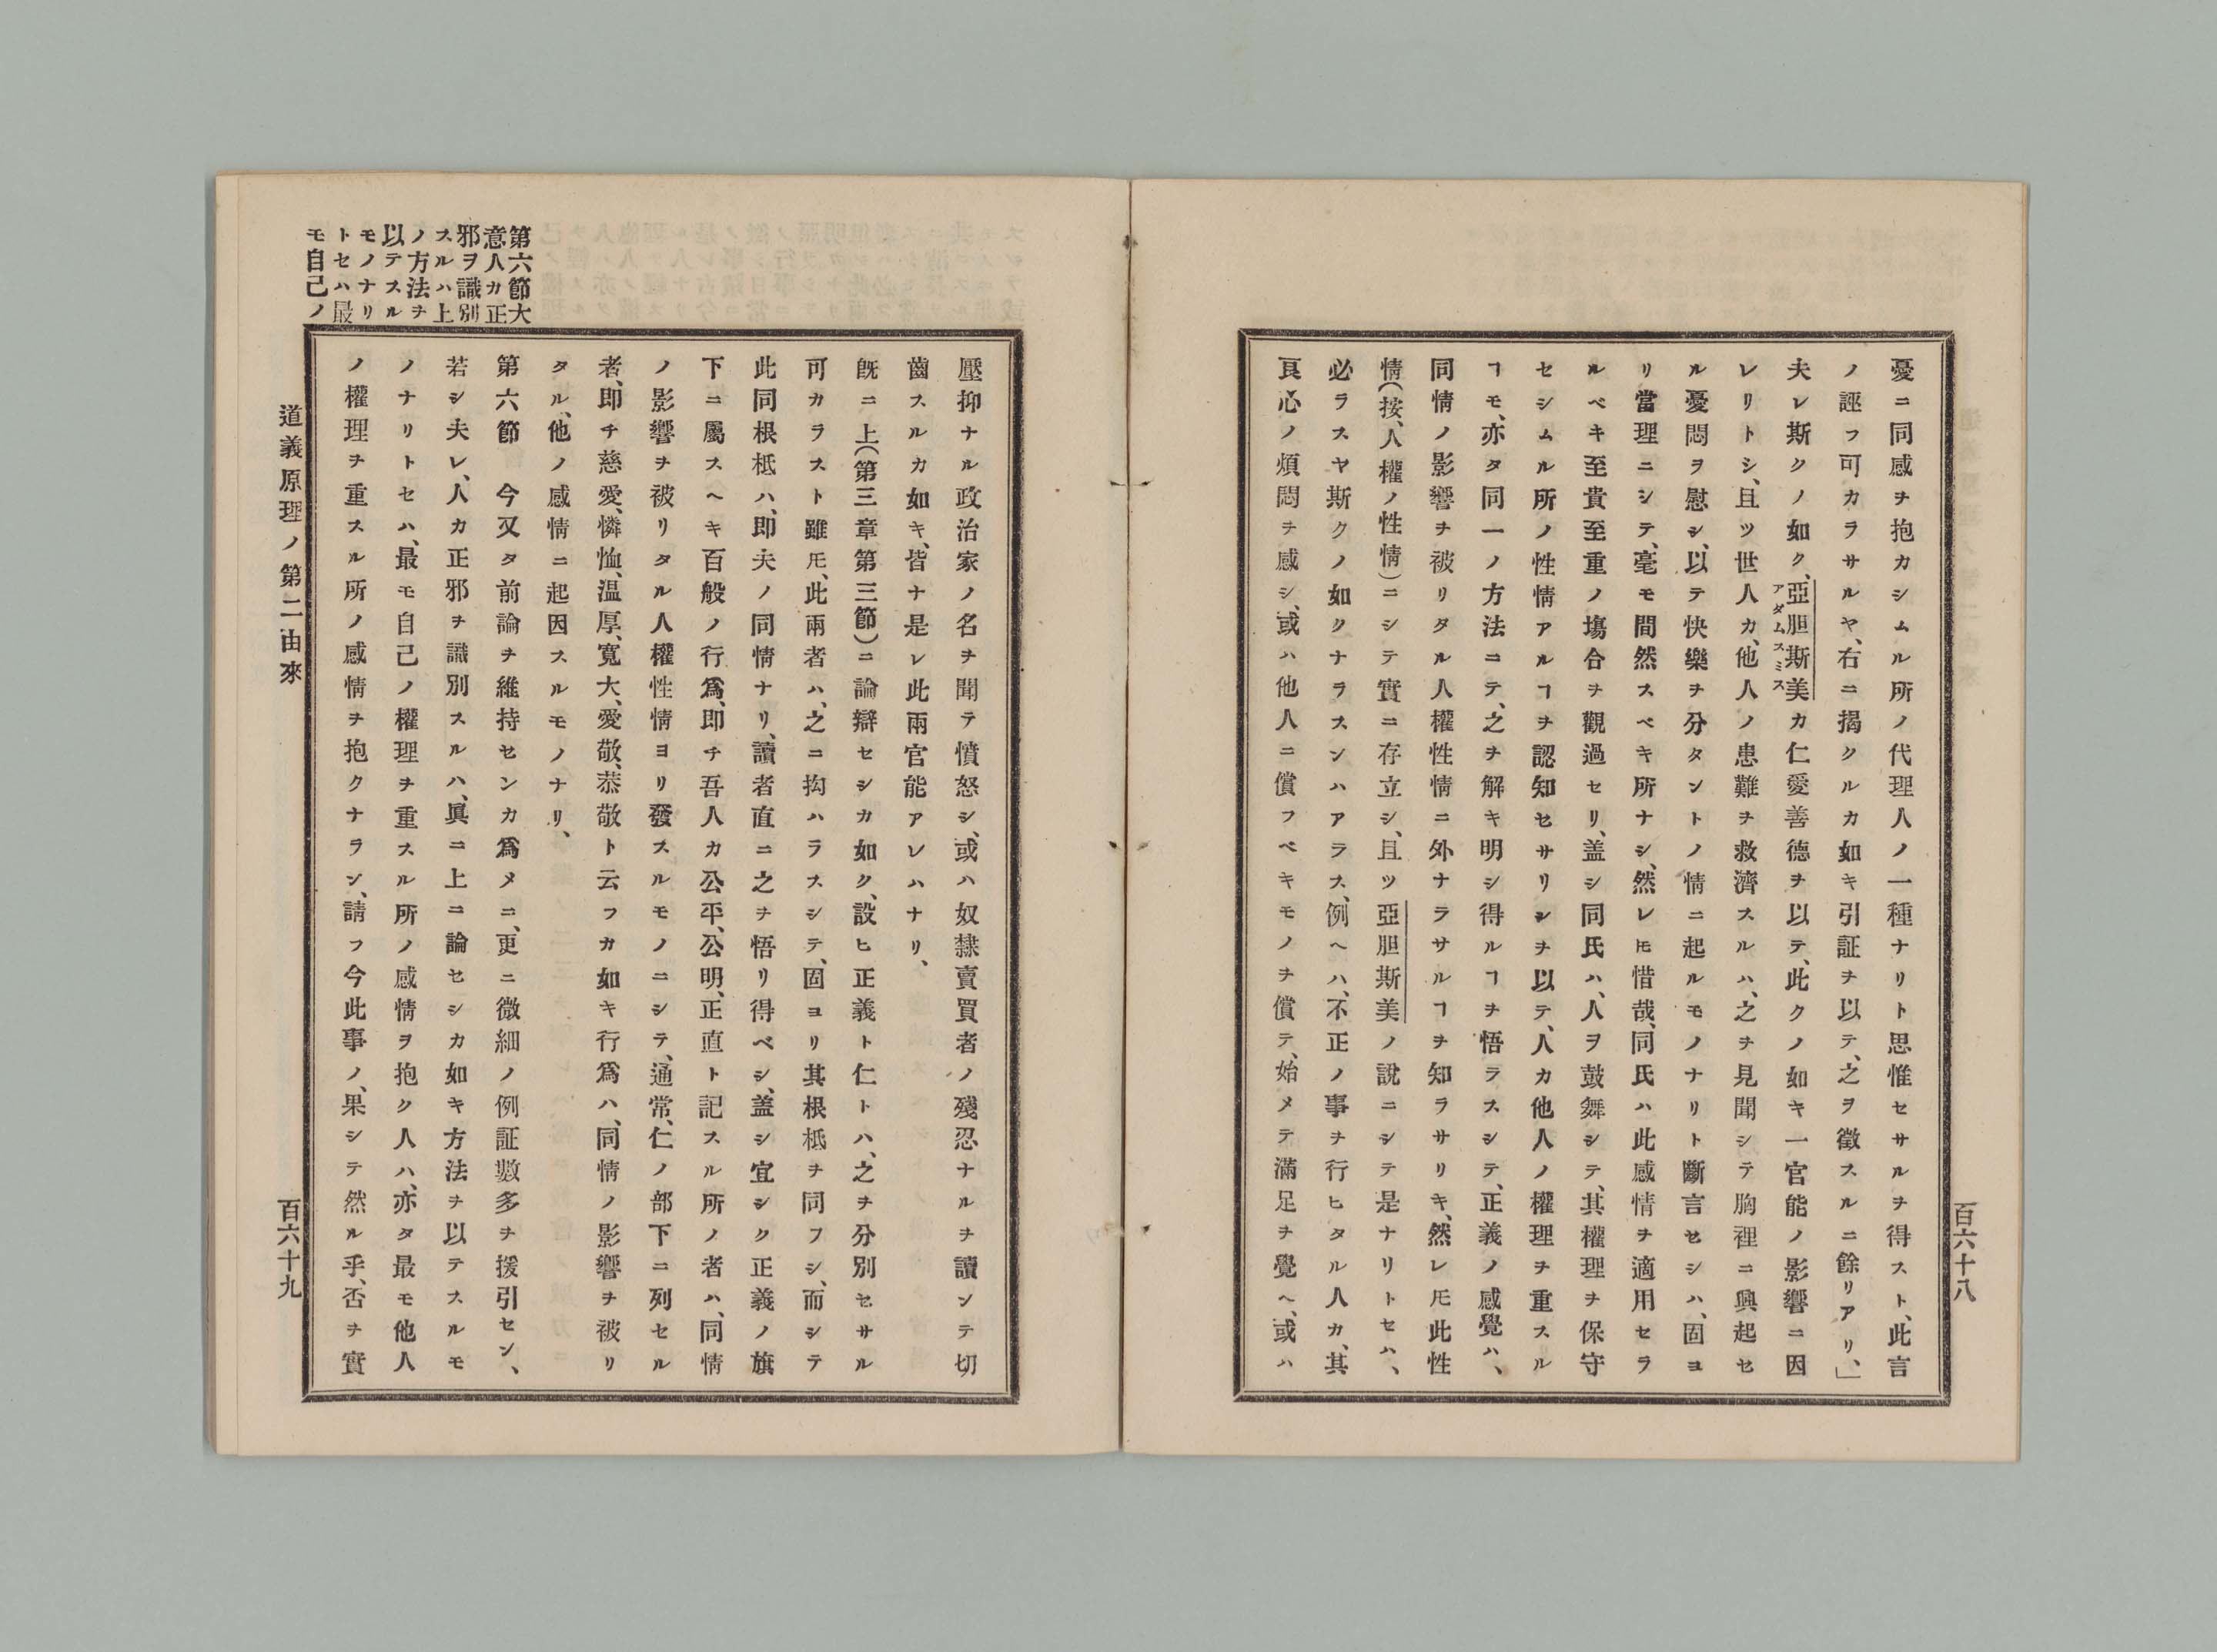 憂ニ同感ヲ抱カシムル所ノ代理人ノ一種ナリト思惟セサルヲ得スト、此言
ノ誣フ可カラサルヤ、右ニ揭クルカ如キ引証ヲ以テ、之ヲ徵スルニ餘リアリ、」
夫レ斯クノ如ク、亞胆斯美カ仁愛善德ヲ以テ、此クノ如キ一官能ノ影響ニ因
アダムスミス
レリトシ、且ツ世人カ、他人ノ患難ヲ救濟スルハ、之ヲ見聞シテ胸裡ニ興起セ
ル憂悶ヲ慰シ、以テ快樂ヲ分タントノ情ニ起ルモノナリト斷言セシハ、固ヨ
リ當理ニシテ、毫モ間然スベキ所ナシ、然レ𪜈惜哉、同氏ハ此感情ヲ適用セラ
ルベキ至貴至重ノ塲合ヲ觀過セリ、盖シ同氏ハ、人ヲ鼓舞シテ、其權理ヲ保守
セシムル所ノ性情アルヿヲ認知セサリシヲ以テ、人カ他人ノ權理ヲ重スル
ヿモ、亦タ同一ノ方法ニテ、之ヲ解キ明シ得ルヿヲ悟ラスシテ、正義ノ感覺ハ、
同情ノ影響ヲ被リタル人權性情ニ外ナラサルヿヲ知ラサリキ、然レ𪜈此性
情(按、人權ノ性情)ニシテ實ニ存立シ、且ツ亞胆斯美ノ說ニシテ是ナリトセハ、
必ラスヤ斯クノ如クナラスンハアラス、例ヘハ、不正ノ事ヲ行ヒタル人カ、其
良心ノ煩悶ヲ感シ、或ハ他人ニ償フベキモノヲ償テ、始メテ滿足ヲ覺ヘ、或ハ
百六十八
壓抑ナル政治家ノ名ヲ聞テ憤怒シ、或ハ奴隷賣買者ノ殘忍ナルヲ讀ンテ切
齒スルカ如キ、皆ナ是レ此兩官能アレハナリ、
旣ニ上(第三章第三節)ニ論辯セシカ如ク、設ヒ正義ト仁トハ、之ヲ分別セサル
可カラスト雖𪜈、此兩者ハ、之ニ抅ハラスシテ、固ヨリ其根柢ヲ同フシ、而シテ
此同根柢ハ、即夫ノ同情ナリ、讀者直ニ之ヲ悟リ得ベシ、盖シ宜シク正義ノ旗
下ニ屬スヘキ百般ノ行爲、即チ吾人カ公平、公明、正直ト記スル所ノ者ハ、同情
ノ影響ヲ被リタル人權性情ヨリ發スルモノニシテ、通常、仁ノ部下ニ列セル
者、即チ慈愛、憐恤、溫厚、寬大、愛敬、恭敬ト云フカ如キ行爲ハ、同情ノ影響ヲ被リ
タル、他ノ感情ニ起因スルモノナリ、
第六節　今又タ前論ヲ維持センカ爲メニ、更ニ微細ノ例証數多ヲ援引セン、
若シ夫レ、人カ正邪ヲ識別スルハ、眞ニ上ニ論セシカ如キ方法ヲ以テスルモ
ノナリトセハ、最モ自己ノ權理ヲ重スル所ノ感情ヲ抱ク人ハ、亦タ最モ他人
ノ權理ヲ重スル所ノ感情ヲ抱クナラン、請フ今此事ノ、果シテ然ル乎、否ヲ實
第六節大
意人カ正
邪ヲ識別
スルハ上
ノ方法ヲ
以テスル
モノナリ
トセハ最
モ自己ノ
道義原理ノ第二由來
百六十九